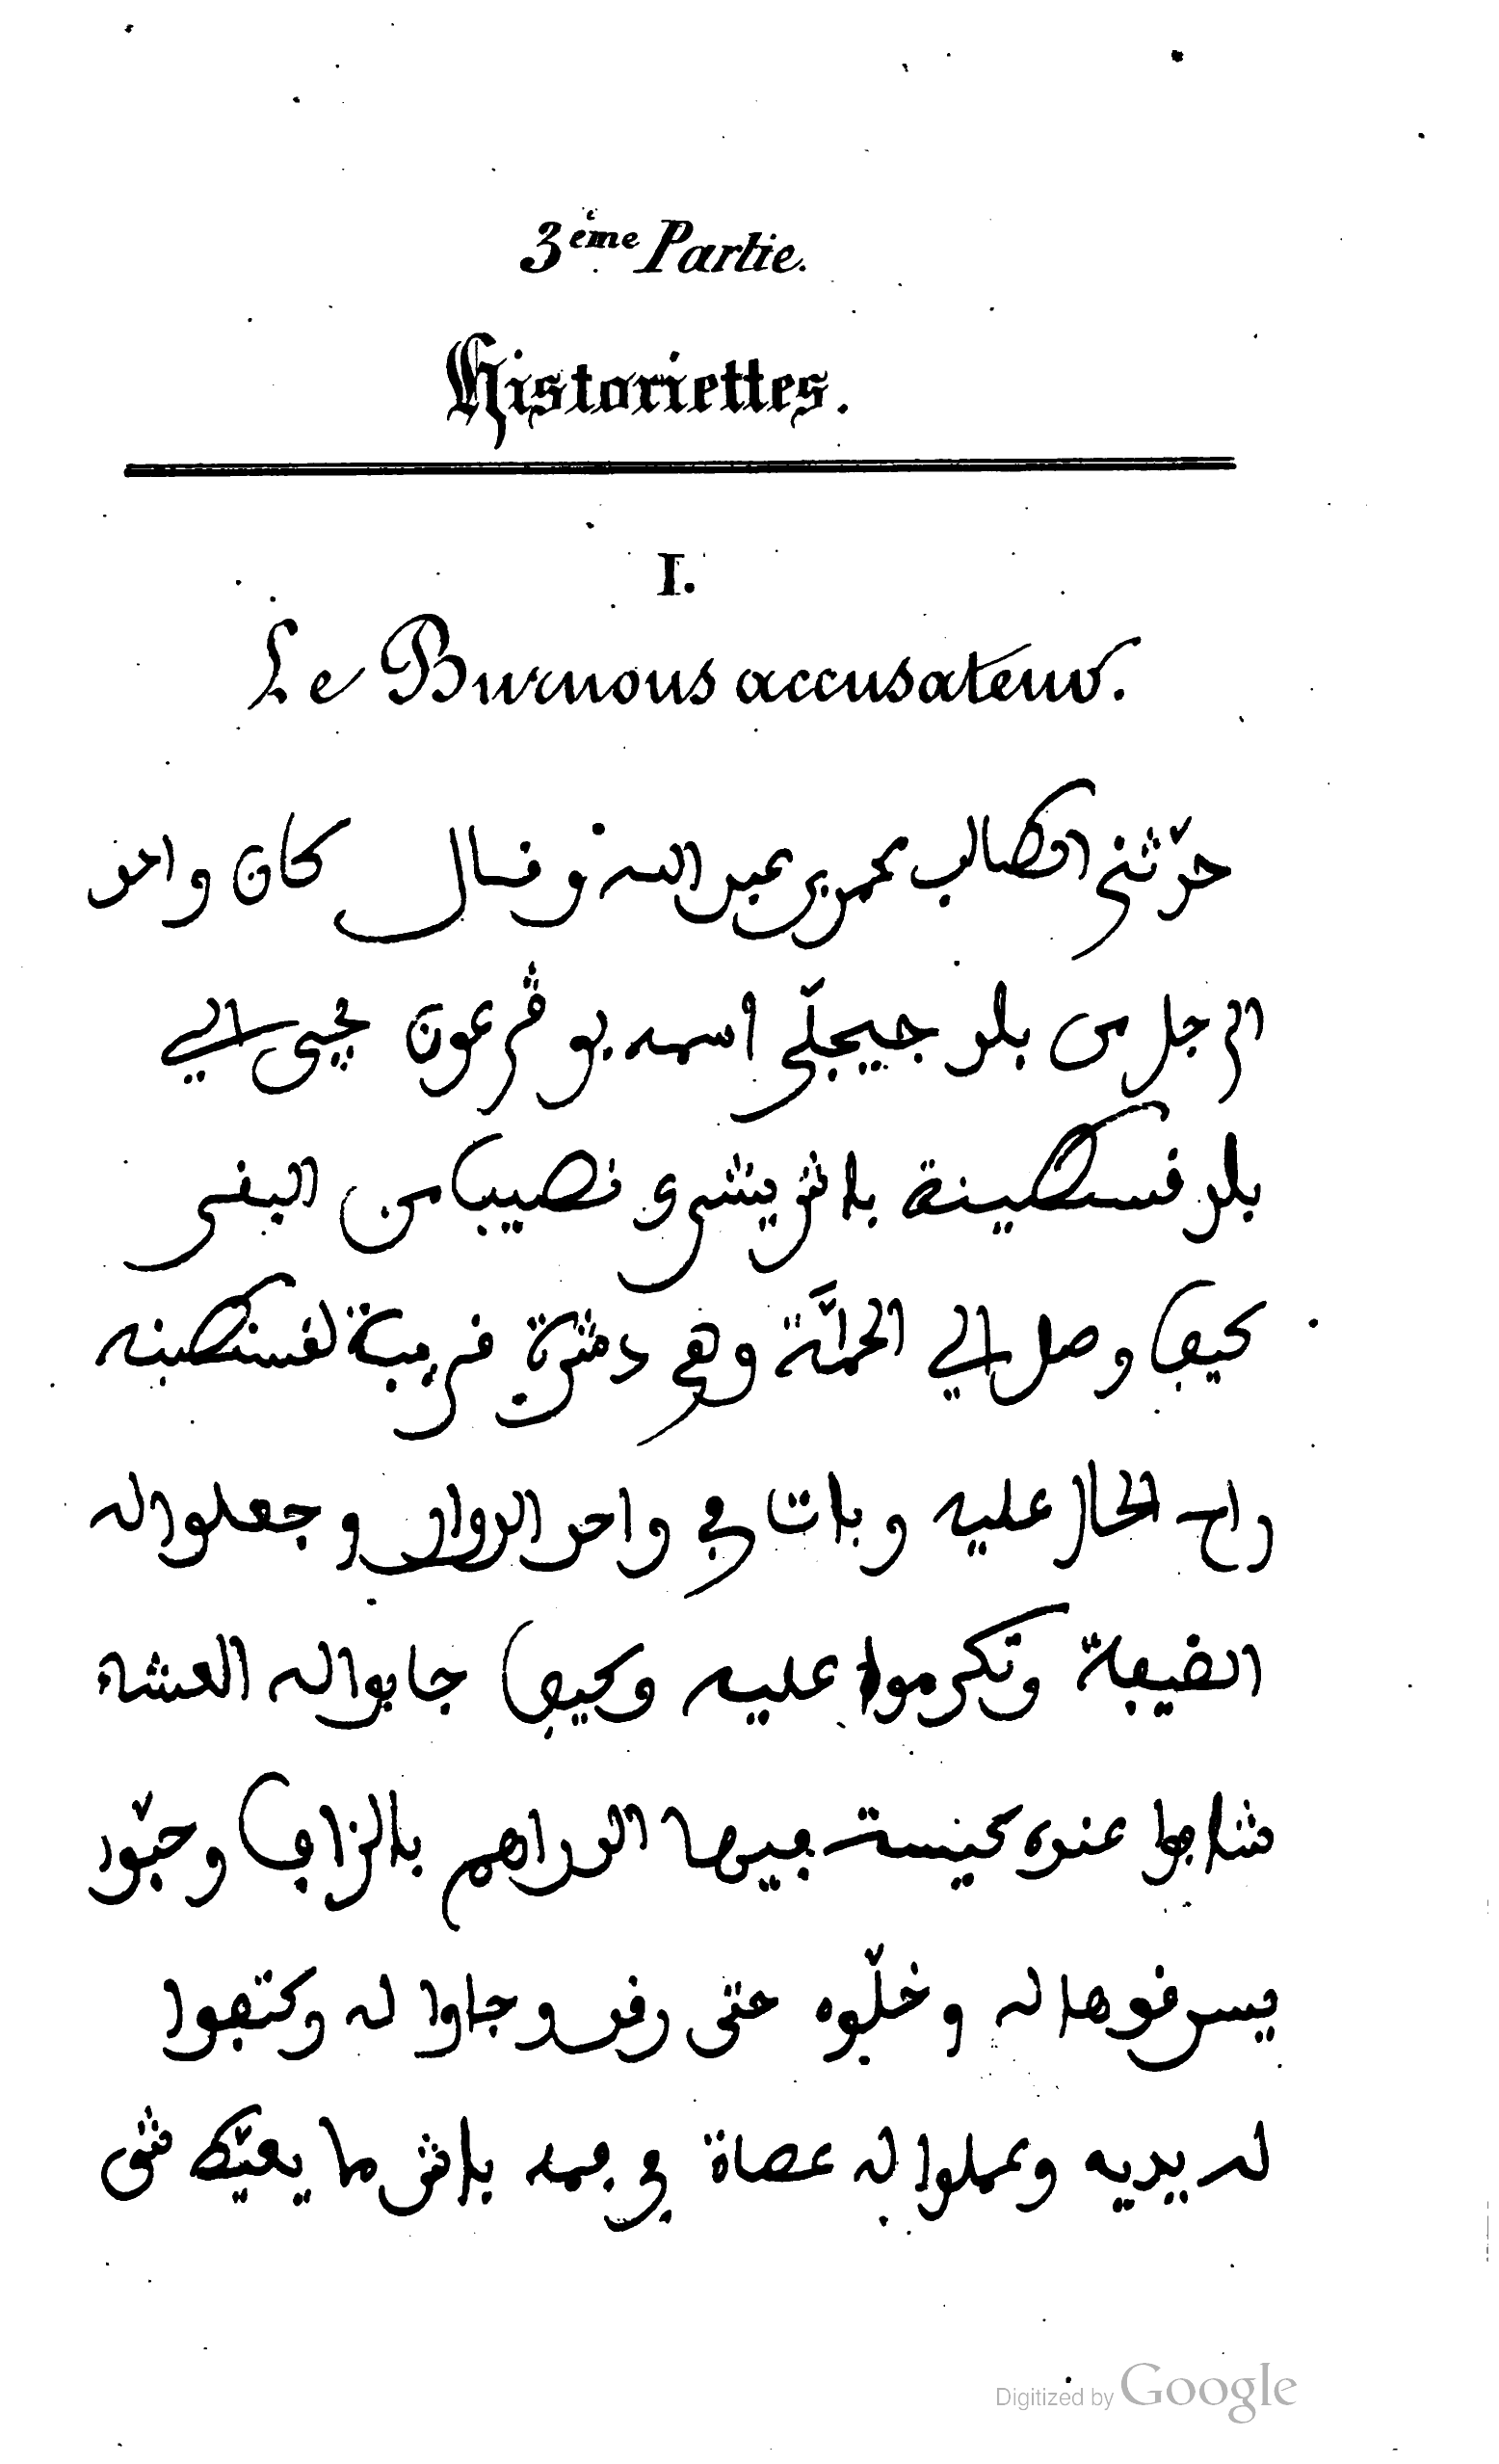 3ème Partie.
Historiettes.
I.
Le Burnous accusateur.
حدّثني الطالب محمد بن عبد الله وقال كان واحد
الرجل من بلد جيجلّي اسمه بو فرعون يجي الي
بلد قسنطينة باش يشري نصيب من البقر
كيف وصل الي الحمّة وهي دشرة قريبة لقسنطينه
راح الحال عليه وبات في واحد الدوار وجعلوا له
الضيفة وتكرموا عليه وكيف جابوا له العشاء
شافوا عنده كيسة فيها الدراهم بالزاف وحبّوا
يسرقوها له وخلّوه حتى رقد وجاوا له وكتفوا
له يديه وعملوا له عصاة في فمه باش ما يعيّط شي
Digitized by Google